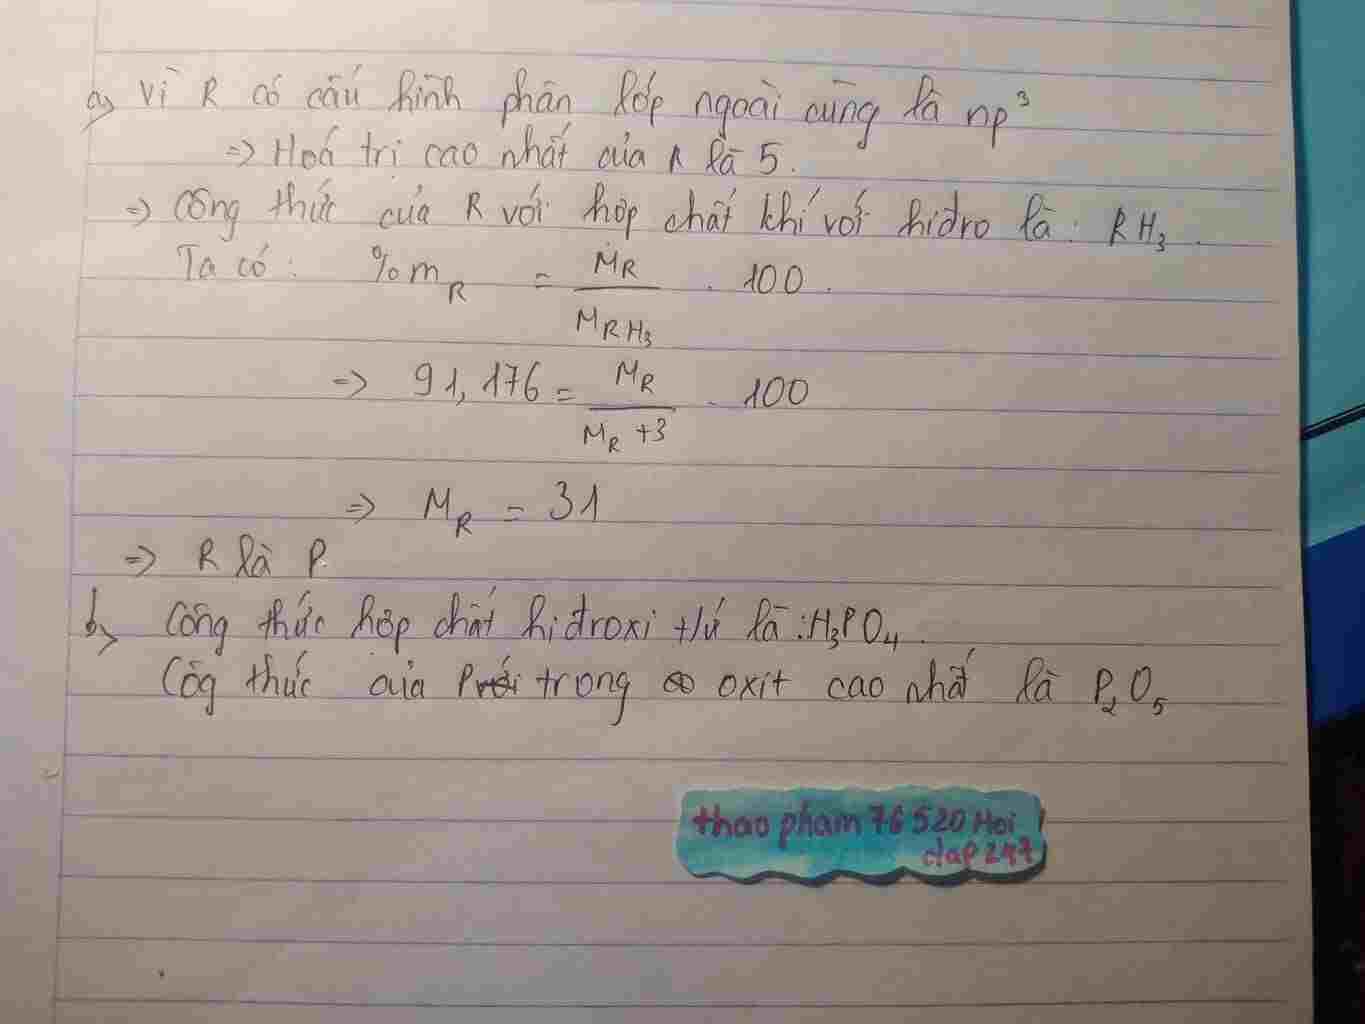 a) Vì R có cấu hình phân lớp ngoài cùng là np³
=> Hoá trị cao nhất của R là 5.
=> Công thức của R với hợp chất khí với hiđro là : RH₃.
Ta có : %m_R = M_R / M_RH₃ . 100.
=> 91,176 = M_R / M_R +3 . 100
=> M_R = 31
=> R là P.
b) Công thức hợp chất hiđroxi t/ứ là : H₃PO₄.
Côg thức của P trong oxit cao nhất là P₂O₅
thao pham 76 520 Hoi
dap 247